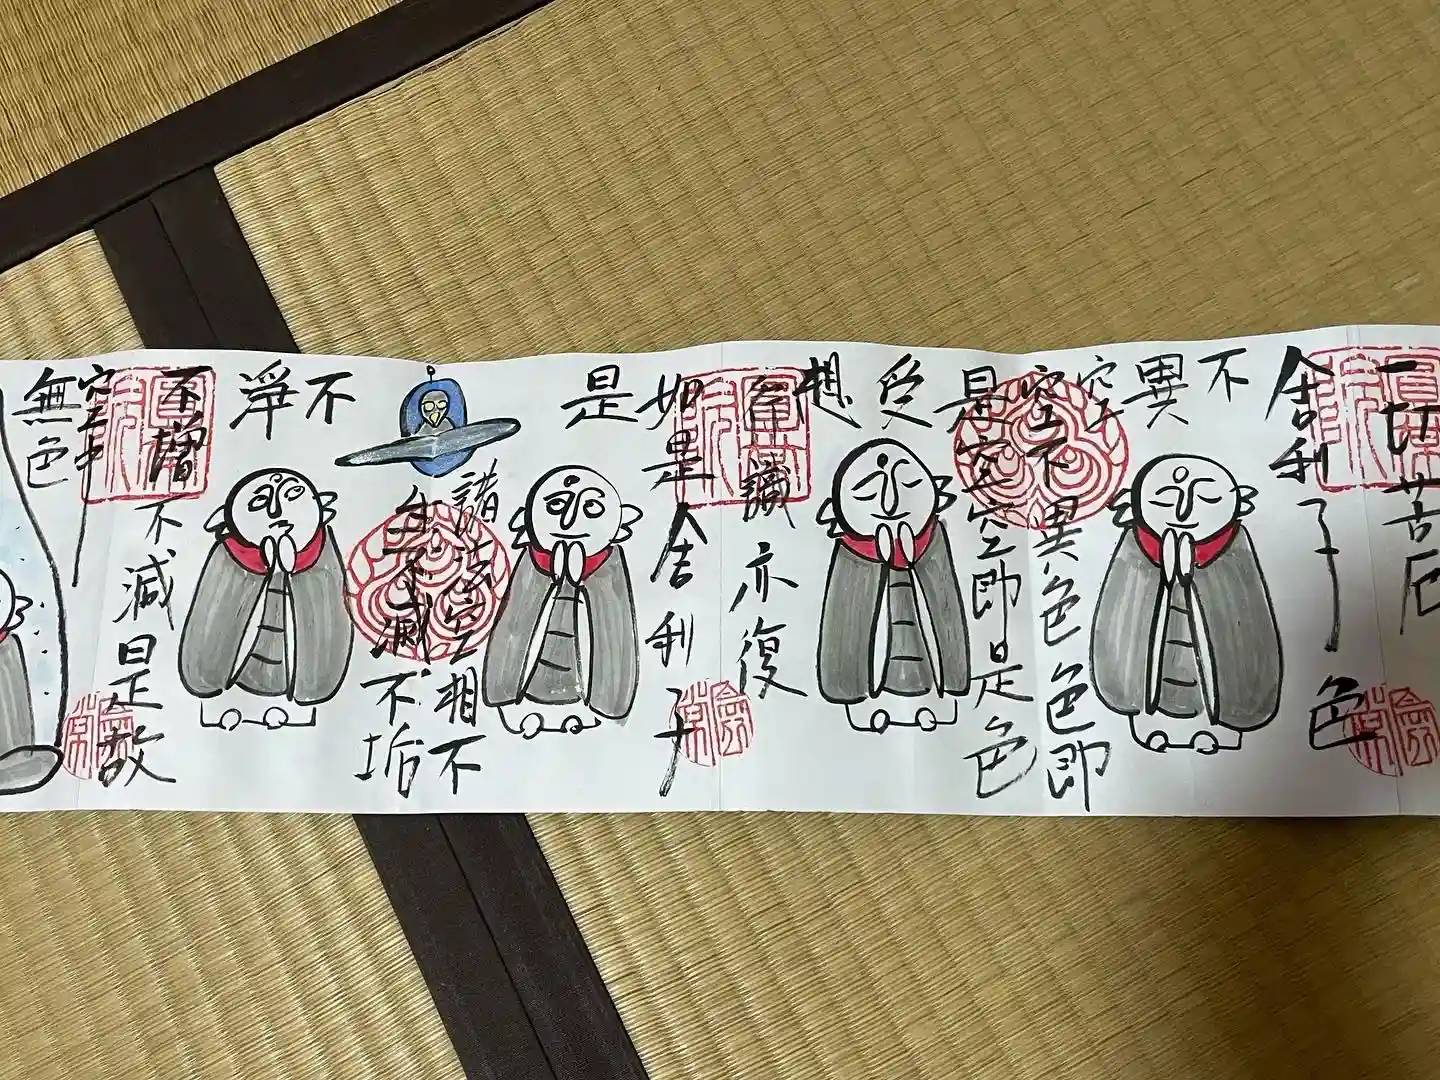 一切苦厄
舎利子色
不
異
空
空不異色色即
是空空即是色
受
想
行識亦復
如是舎利子
是
諸法空相不
生不滅不垢
不
淨
不増
不減是故
空中
無色